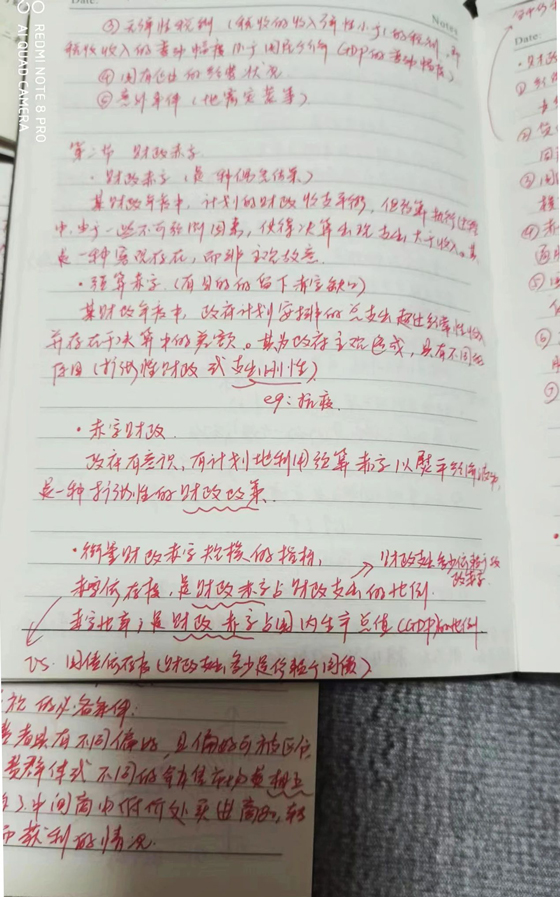 Notes
Date:
③无弹性税制(税收的收入弹性小于1的税制,即
税收收入的变动幅度小于国民生产 GDP的变动幅度)
④国有企业的经营状况
⑤意外事件(地震灾荒等)
第二节 财政赤字
·财政赤字(是一种仍为结果)
某财政年度中,计划的财政收支平衡,但预算执行过程
中,由于一些不可预测因素,使得决算出现支出大于收入。其
是一种客观存在,而非主观故意.
·预算赤字(有目的的留下赤字缺口)
某财政年度中,政府计划安排的总支出超过经常性收入
并存在于决算中的差额。其为政府主观造成,具有不同
原因(扩张性财政或支出刚性)
eg:抗疫.
·赤字财政.
政府有意识、有计划地利用预算赤字以熨平经济波动,
是一种扩张性的财政政策.
·衡量财政赤字规模的指标,
财政支出多少依赖于财
政赤字.
赤字依存度,是财政赤字占财政支出的比例.
赤字比率;是财政赤字占国内生产总值(GDP)的比例
VS. 国债依存度(财政支出多少是依赖于国债)
的必备条件:
者具有不同偏好,且偏好可被区分
费群体或不同的销售市场是相互
中间商中低价处买进商品,转
而获利的情况.
REDMI NOTE 8 PRO
AI QUAD CAMERA
Date: